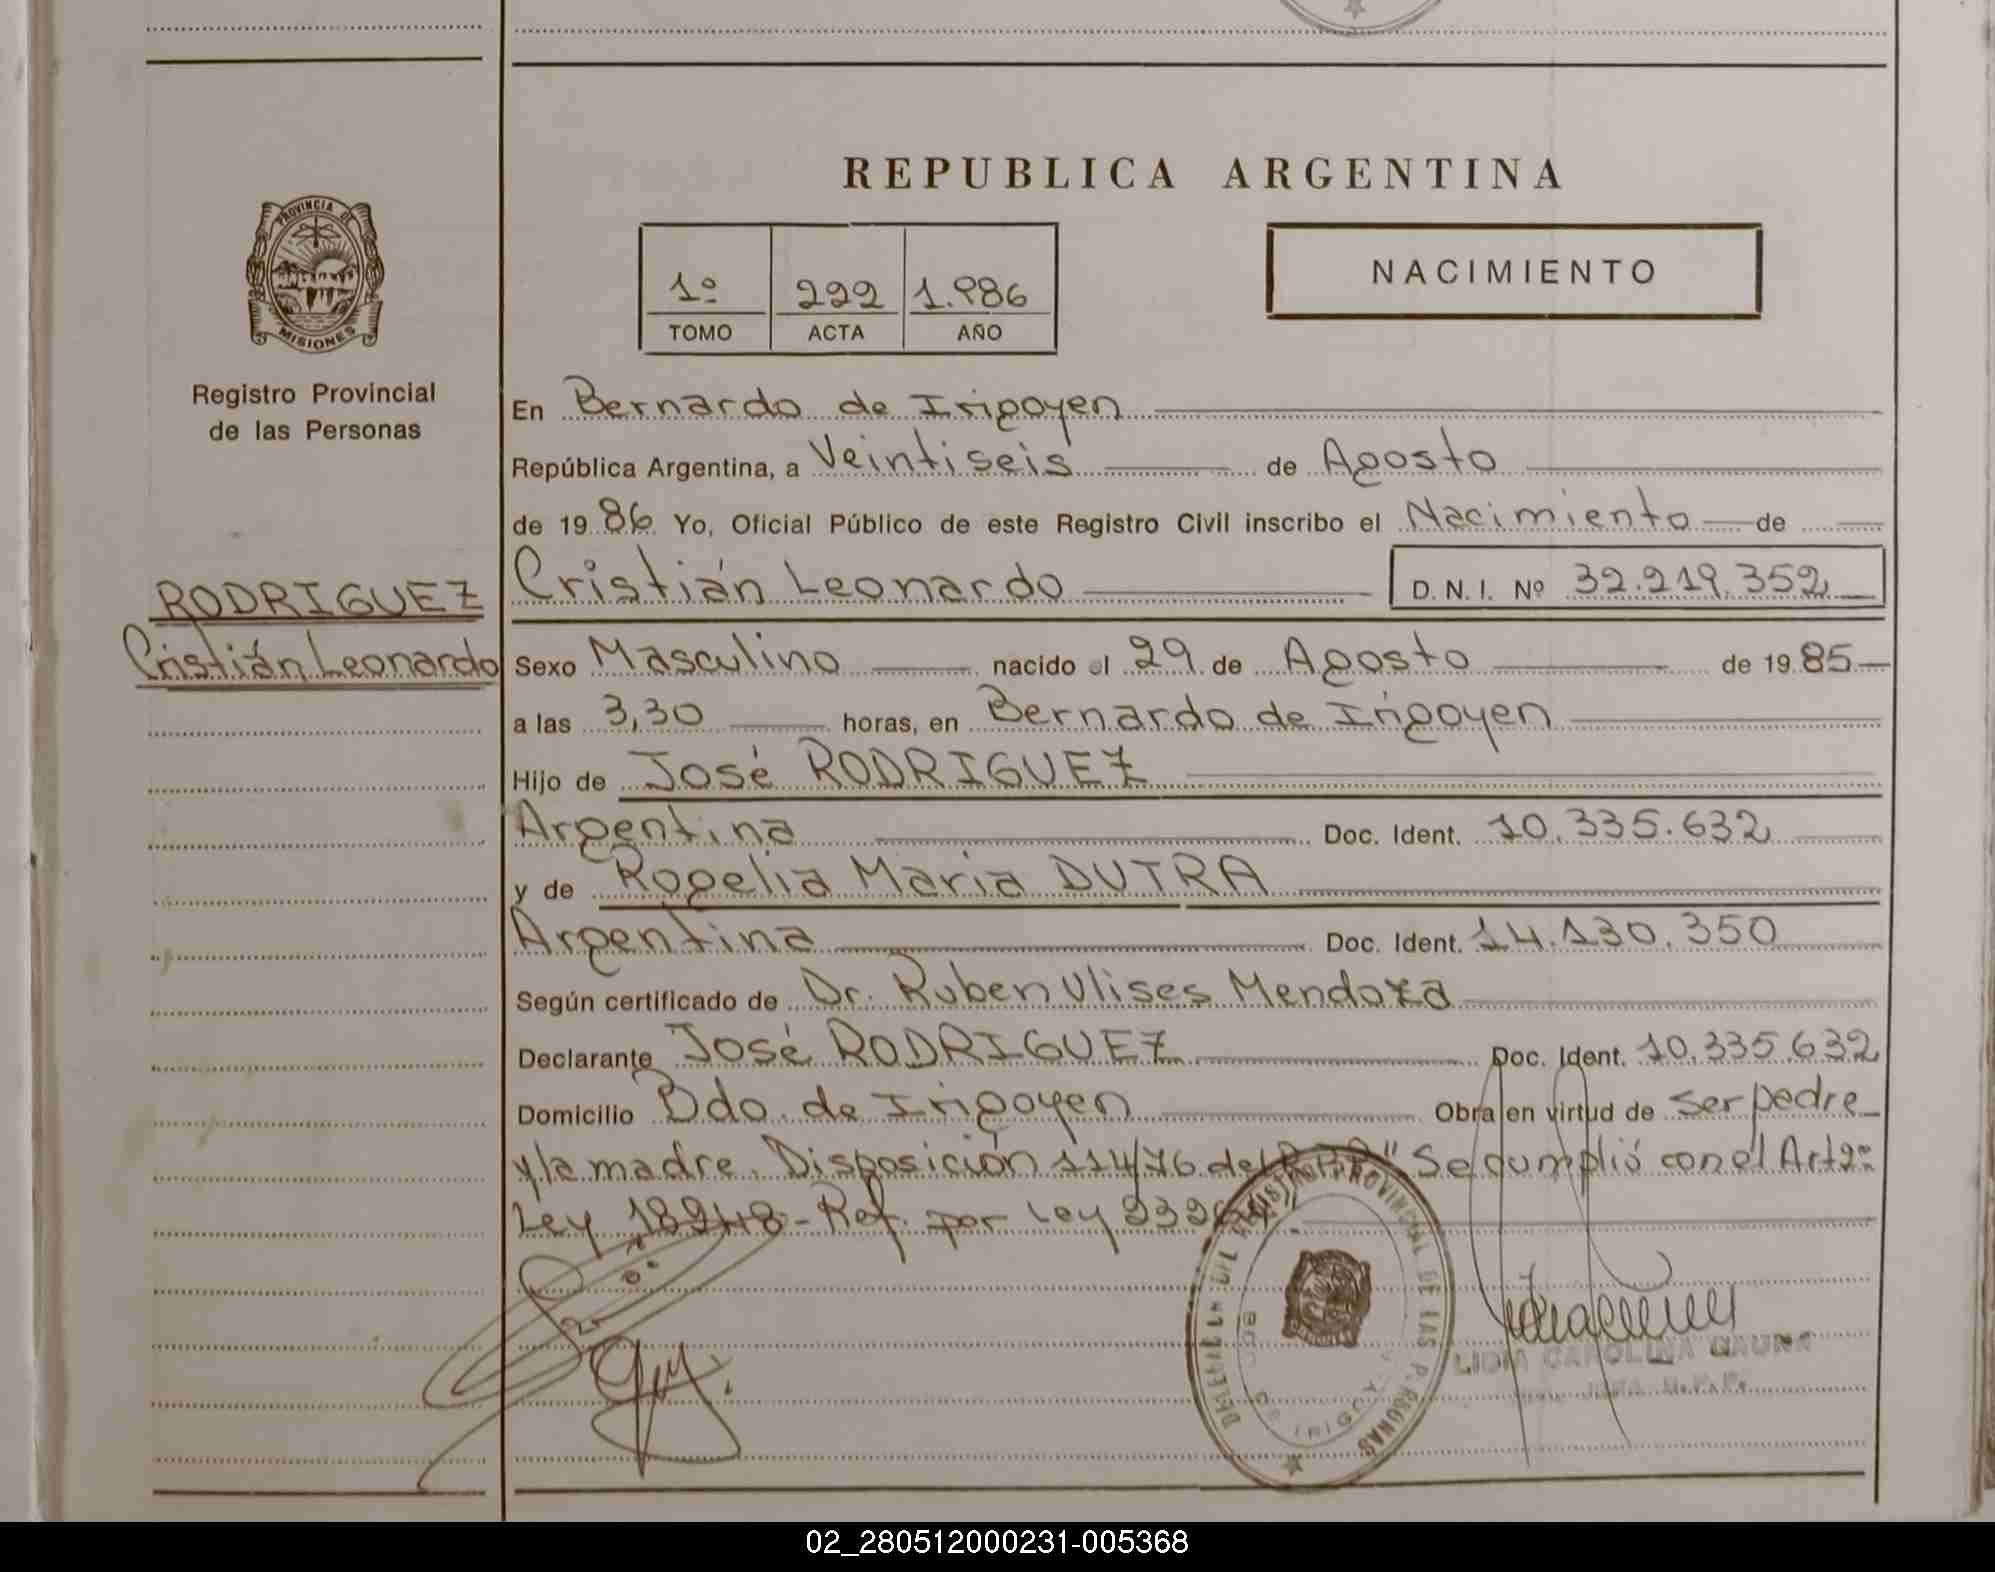 REPUBLICA ARGENTINA
PROVINCIA DE
MISIONES
Registro Provincial
de las Personas
1º 222 1.986
TOMO ACTA AÑO
NACIMIENTO
En Bernardo de Irigoyen
República Argentina, a Veintiseis de Agosto
de 19 86 Yo, Oficial Público de este Registro Civil inscribo el Nacimiento de
RODRIGUEZ
Cristián Leonardo
Cristián Leonardo D. N. I. Nº 32.219.352
Sexo Masculino nacido el 29 de Agosto de 19 85
a las 3,30 horas, en Bernardo de Irigoyen
Hijo de José RODRIGUEZ
Argentina Doc. Ident. 10.335.632
y de Rogelia Maria DUTRA
Argentina Doc. Ident. 14.130.350
Según certificado de Dr. Ruben Ulises Mendoza
Declarante José RODRIGUEZ Doc. Ident. 10.335.632
Domicilio Bdo. de Irigoyen Obra en virtud de ser pedre
y/a madre. Disposición 114/76 del "Se cumplió con el Art 2º
Ley 18248 - Ref. por Ley
DEL REGISTRO PROVINCIAL DE LAS P
LIDIA CAROLINA GAUNA
02_280512000231-005368